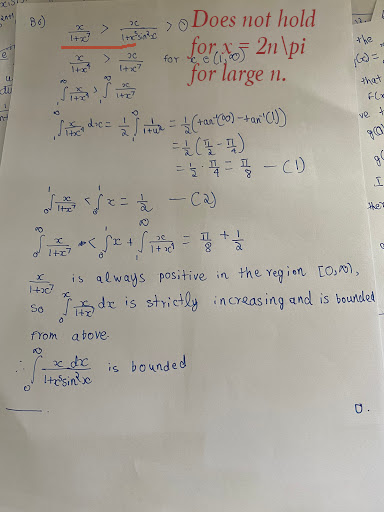 80) x/(1+x⁷) > x/(1+x⁵sin²x) > 0
Does not hold
for x = 2n\pi
for large n.
x/(1+x⁴) > x/(1+x⁷) for x ∈ (1,∞)
₁∫^∞ x/(1+x⁴) > ₁∫^∞ x/(1+x⁷)
₁∫^∞ x/(1+x⁴) dx = 1/2 ₁∫^∞ 1/(1+u²) = 1/2 (tan⁻¹(∞) - tan⁻¹(1))
= 1/2 (π/2 - π/4)
= 1/2 · π/4 = π/8 — (1)
₀∫¹ x/(1+x⁷) < ₀∫¹ x = 1/2 — (2)
₀∫^∞ x/(1+x⁷) < ₀∫¹ x + ₁∫^∞ x/(1+x⁴) = π/8 + 1/2
x/(1+x⁷) is always positive in the region [0,∞),
so ₀∫^x x/(1+x⁷) dx is strictly increasing and is bounded
from above.
∴ ₀∫^∞ x dx/(1+x⁵sin²x) is bounded
0.